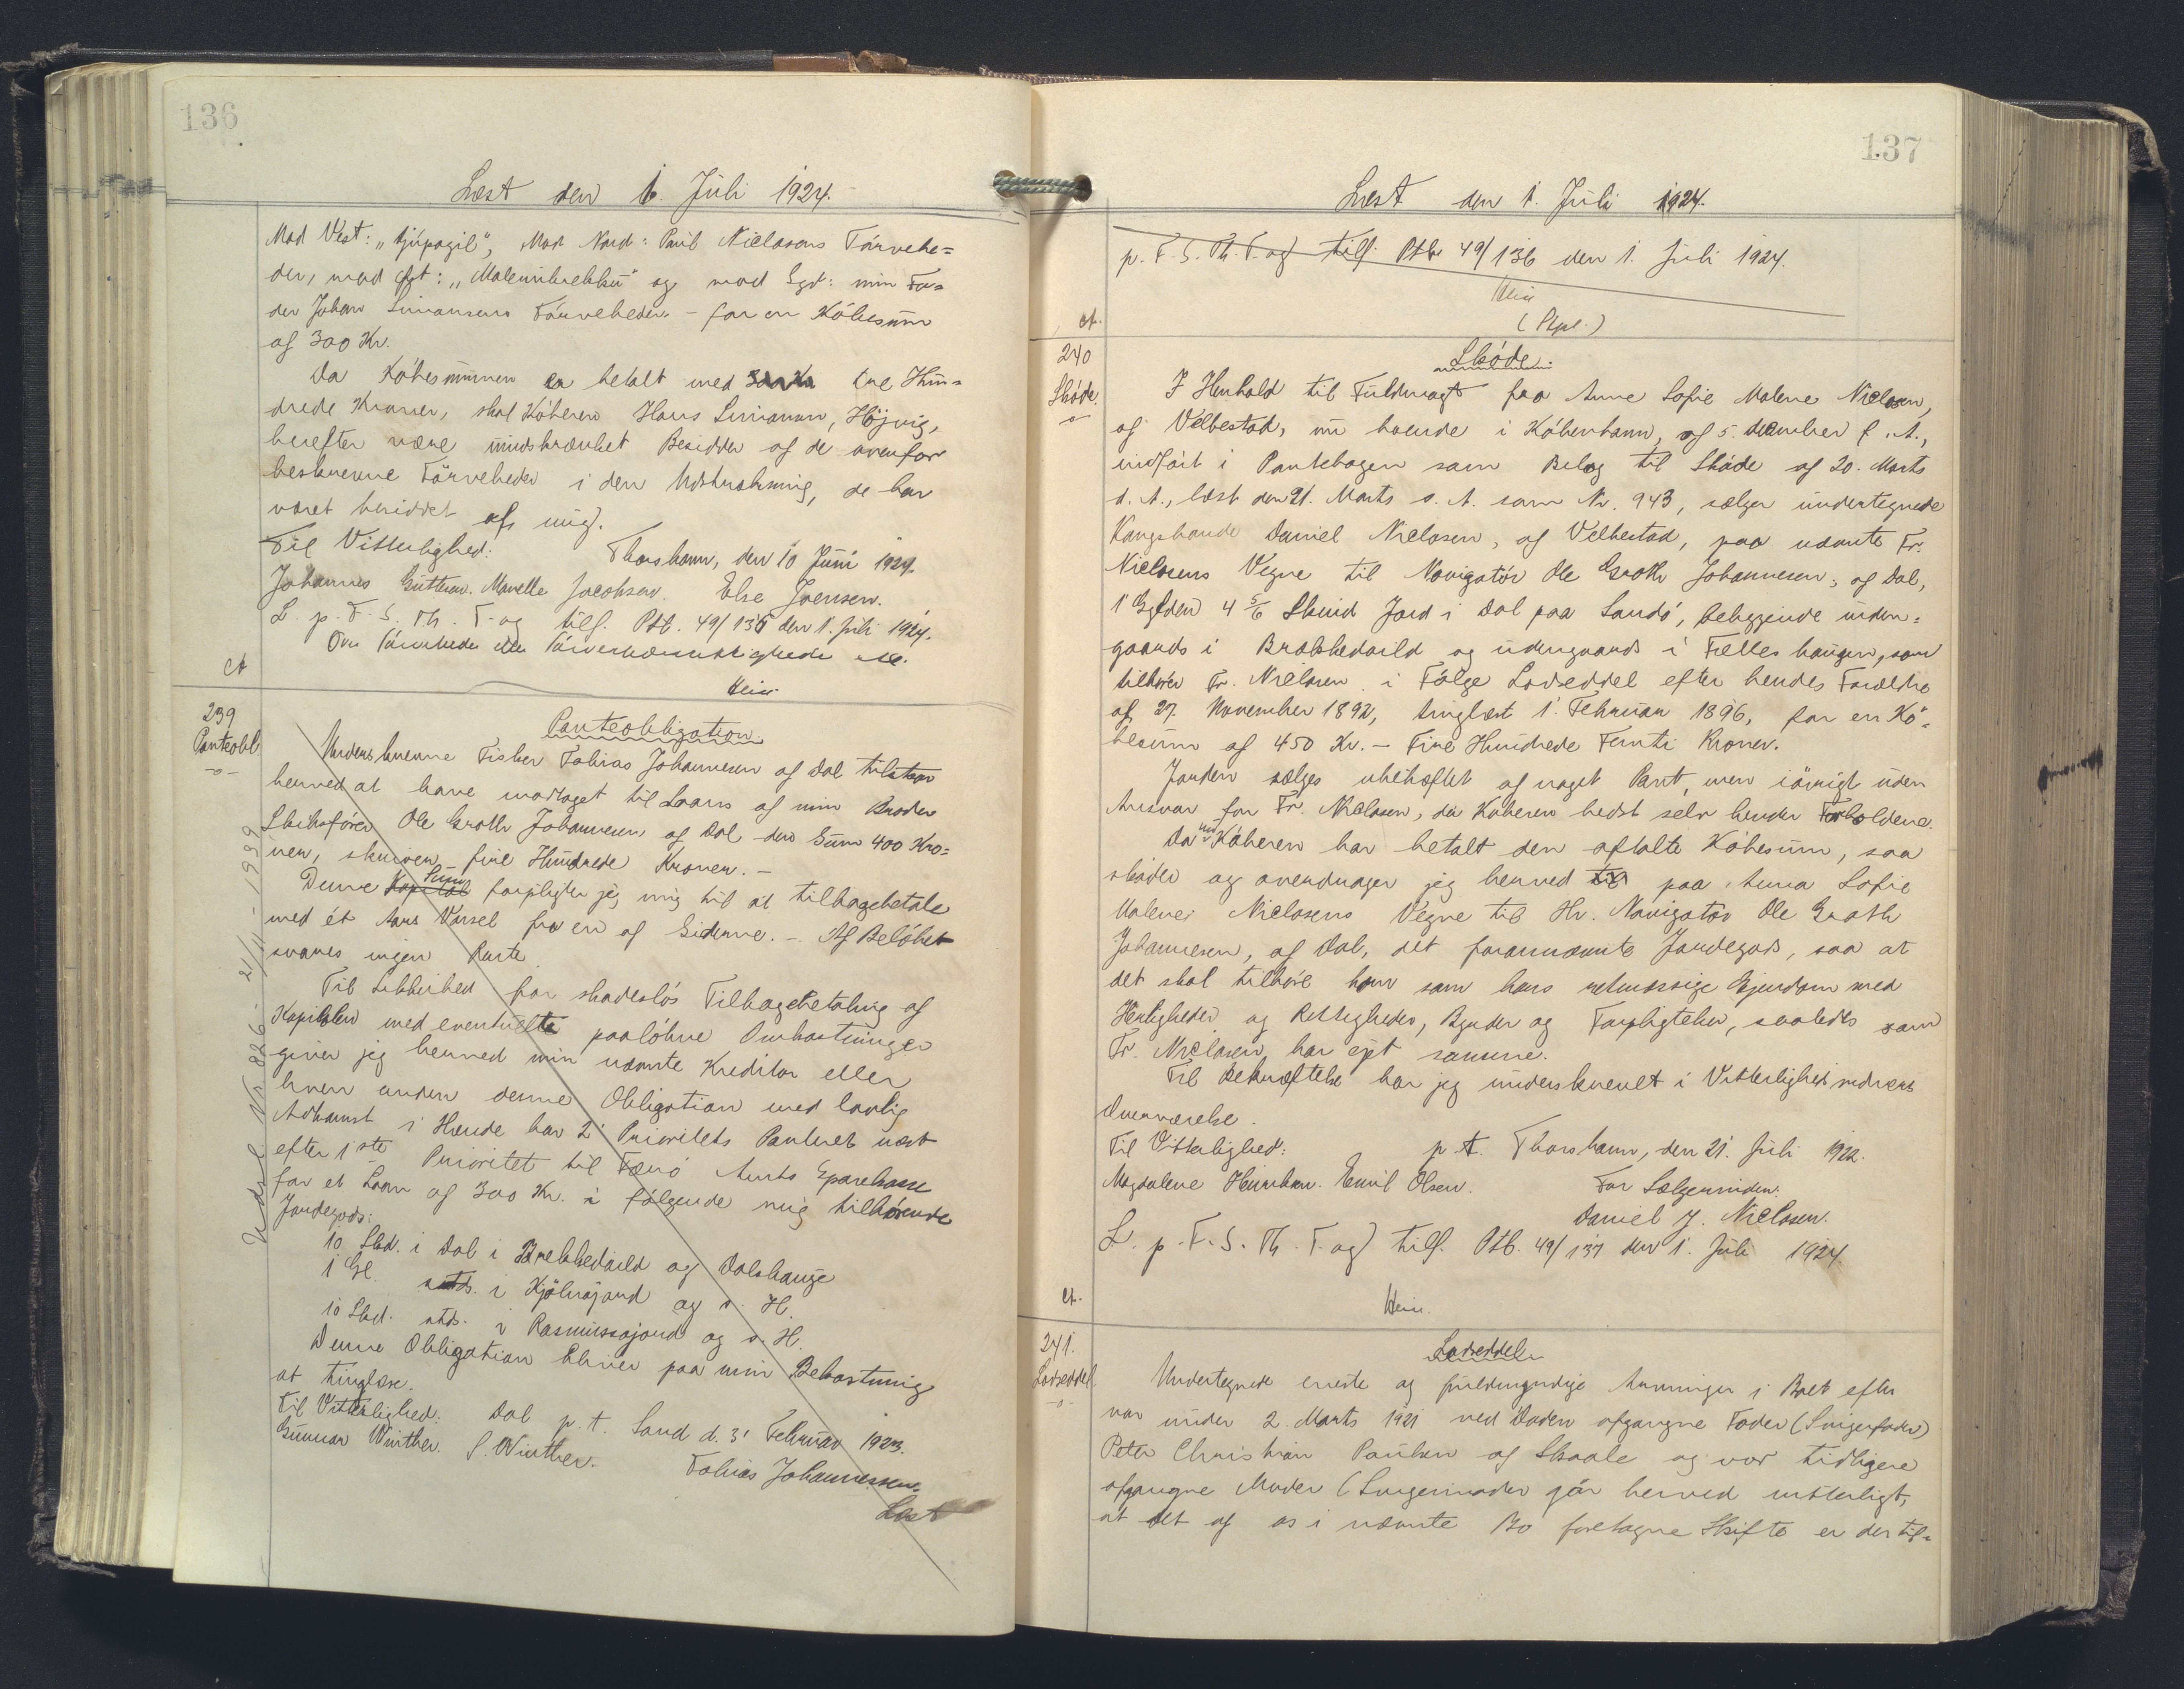 136
Læst den 1. Juli 1924.
Mod Vest: „Djúpagil", Mod Nord: Paul Niclasens Törvehe=
der, mod Øst: „Malenubrekku" og mod Syd: min Fa=
der Johan Simonsens Törveheder - for en Köbesum
af 300 Kr.
Da Köbesummen er betalt med tre Hun=
drede Kroner, skal Köberen Hans Simonsen, Höjvig,
herefter være uindskrænket Besidder af de ovenfor
beskrevne Törveheder i den Udstrækning, de har
været besiddet af mig.
Til Vitterlighed: Thorshavn, den 10 Juni 1924.
Johannes Guttesen. Marelle Jacobsen. Else Joensen.
L. p. F. S. Th. T. og tilf. Ptb. 49/136 den 1. Juli 1924.
Om Törveheder
Ct
Hein
239
Panteobl.
-o-
Panteobligation.
Underskrevne Fisker Tobias Johannesen af Dal tilstaar
herved at have modtaget til Laans af min Broder
Skibsförer Ole Groth Johannesen af Dal den Sum 400 Kro=
ner, skriver fire Hundrede Kroner. -
Denne Kapital Sum forpligter jeg mig til at tilbagebetale
med ét Aars Varsel fra en af Siderne. - Af Belöbet
svares ingen Rente.
Til Sikkerhed for skadeslös Tilbagebetaling af
Kapitalen med eventuelle paalöbne Omkostninger
giver jeg herved min nævnte Kreditor eller
hvem anden denne Obligation med lovlig
Adkomst i Hænde har 2' Prioritets Panteret næst
efter 1ste Prioritet til Færö Amts Sparekasse
for et Laan af 300 Kr. i fölgende mig tilhörende
Jordegods:
10 Skd. i Dal i Brekkedeild og Dalshauge
1 Gl. sstds. i Kjölnajord og s. H.
10 Skd. stds. i Rasmussajord og s. H.
Denne Obligation bliver paa min Bekostning
at tinglæse.
Til Vitterlighed: Dal p. t. Sand d. 3' Februar 1923.
Gunnar Winther. S. Winther. Tobias Johannessen.
Læst
Udsl. Nr 826 - 21/11 - 1939
137
Læst den 1. Juli 1924.
p. F. S. Th. T. og tilf. Ptb 49/136 den 1. Juli 1924.
Hein
(Stpl.)
Ct.
240
Sköde.
-o-
Sköde.
I Henhold til Fuldmagt fra Anne Sofie Malene Niclasen,
af Velbestad, nu boende i Köbenhavn, af 5. december f. A.,
indfört i Pantebogen som Bilag til Sköde af 20. Marts
d. A., læst den 21. Marts s. A. som Nr. 943, sælger undertegnede
Kongsbonde Daniel Niclasen, af Velbestad, paa nævnte Fr.
Niclasens Vegne til Navigatör Ole Groth Johannesen, af Dal,
1 Gylden 4 5/6 Skind Jord i Dal paa Sandö, beliggende inden=
gaards i Brækkedeild og udengaards i Fælles haugen, som
tilhörer Fr. Niclasen i Fölge Lodseddel efter hendes Forældre
af 27. November 1892, tinglæst 1. Februar 1896, for en Kö=
besum af 450 Kr. - Fire Hundrede Femti Kroner.
Jorden sælges ubehæftet af noget Pant, men iövrigt uden
Ansvar for Fr. Niclasen, da Köberen bedst selv kender Forholdene.
Da nu Köberen har betalt den aftalte Köbesum, saa
sköder og overdrager jeg herved til paa Anna Sofie
Malene Niclasens Vegne til Hr. Navigatör Ole Groth
Johannesen, af Dal, det forannævnte Jordegods, saa at
det skal tilhöre ham som hans retmæssige Ejendom med
Herligheder og Rettigheder, Byrder og Forpligtelser, saaledes som
Fr. Niclasen har ejet samme.
Til Bekræftelse har jeg underskrevet i Vitterlighedsvidners
Overværelse.
Til Vitterlighed: p. t. Thorshavn, den 21. Juli 1922.
Magdalene Heinesen. Emil Olsen. For Sælgerinden:
Daniel J. Niclasen.
L. p. F. S. Th. T. og tilf. Ptb. 49/137 den 1. Juli 1924.
Ct.
Hein.
241.
Lodseddel.
-o-
Lodseddel
Undertegnede eneste og fuldmyndige Arvinger i Boet efter
vor under 2. Marts 1921 ved Döden afgangne Fader (Svigerfader)
Peter Christian Paulsen af Skaale og vor tidligere
afgangne Moder (Svigermoder gör herved vitterligt,
at det af os i nævnte Bo foretagne Skifte er der til=